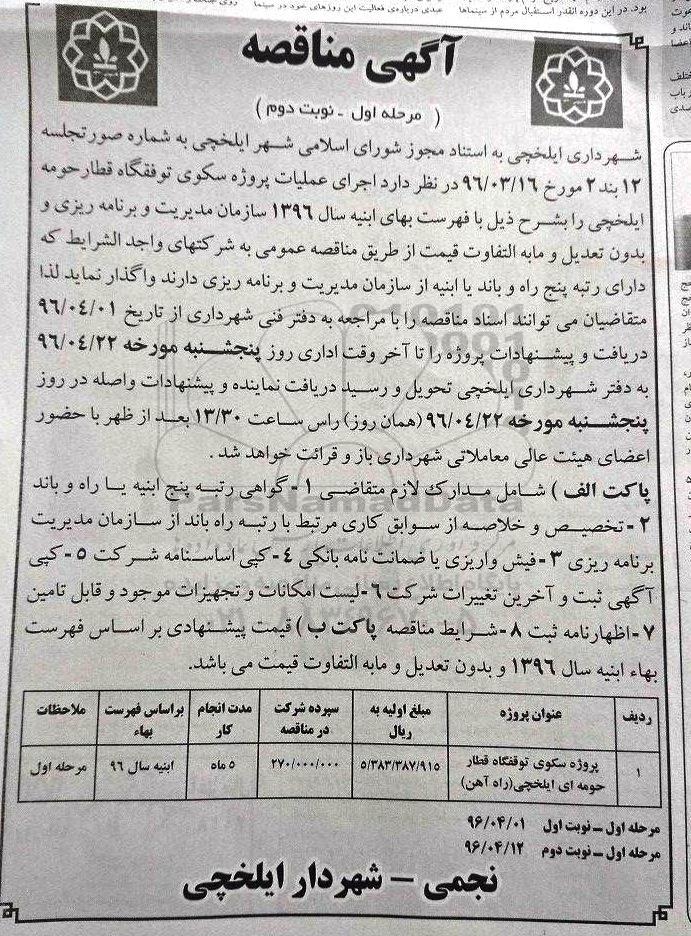 بود. در این دوره آنقدر استقبال مردم از سینماها
عبدی درباره‌ی فعالیت این روزهای خود در سینما
آگهی مناقصه
( مرحله اول - نوبت دوم )
شهرداری ایلخچی به استناد مجوز شورای اسلامی شهر ایلخچی به شماره صورتجلسه
۱۲ بند ۲ مورخ ۹۶/۰۳/۱۶ در نظر دارد اجرای عملیات پروژه سکوی توقفگاه قطار حومه
ایلخچی را بشرح ذیل با فهرست بهای ابنیه سال ۱۳۹۶ سازمان مدیریت و برنامه ریزی و
بدون تعدیل و مابه التفاوت قیمت از طریق مناقصه عمومی به شرکتهای واجد الشرایط که
دارای رتبه پنج راه و باند یا ابنیه از سازمان مدیریت و برنامه ریزی دارند واگذار نماید لذا
متقاضیان می توانند اسناد مناقصه را با مراجعه به دفتر فنی شهرداری از تاریخ ۹۶/۰۴/۰۱
دریافت و پیشنهادات پروژه را تا آخر وقت اداری روز پنجشنبه مورخه ۹۶/۰۴/۲۲
به دفتر شهرداری ایلخچی تحویل و رسید دریافت نماینده و پیشنهادات واصله در روز
پنجشنبه مورخه ۹۶/۰۴/۲۲ (همان روز) راس ساعت ۱۳/۳۰ بعد از ظهر با حضور
اعضای هیئت عالی معاملاتی شهرداری باز و قرائت خواهد شد .
پاکت الف ) شامل مدارک لازم متقاضی ۱- گواهی رتبه پنج ابنیه یا راه و باند
۲- تخصیص و خلاصه از سوابق کاری مرتبط با رتبه راه باند از سازمان مدیریت
برنامه ریزی ۳- فیش واریزی یا ضمانت نامه بانکی ۴- کپی اساسنامه شرکت ۵- کپی
آگهی ثبت و آخرین تغییرات شرکت ۶- لیست امکانات و تجهیزات موجود و قابل تامین
۷- اظهارنامه ثبت ۸- شرایط مناقصه پاکت ب ) قیمت پیشنهادی بر اساس فهرست
بهاء ابنیه سال ۱۳۹۶ و بدون تعدیل و مابه التفاوت قیمت می باشد.
ParsNamadData
ردیف عنوان پروژه مبلغ اولیه به ریال سپرده شرکت در مناقصه مدت انجام کار براساس فهرست بهاء ملاحظات
۱ پروژه سکوی توقفگاه قطار حومه ای ایلخچی(راه آهن) ۵/۳۸۳/۳۸۷/۹۱۵ ۲۷۰/۰۰۰/۰۰۰ ۵ ماه ابنیه سال ۹۶ مرحله اول
مرحله اول – نوبت اول ۹۶/۰۴/۰۱
مرحله اول – نوبت دوم ۹۶/۰۴/۱۲
نجمی – شهردار ایلخچی